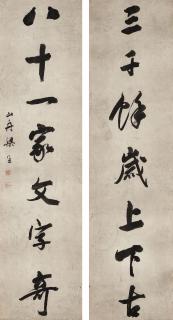 三千餘歲上下古
八十一家文字奇
山舟梁同書